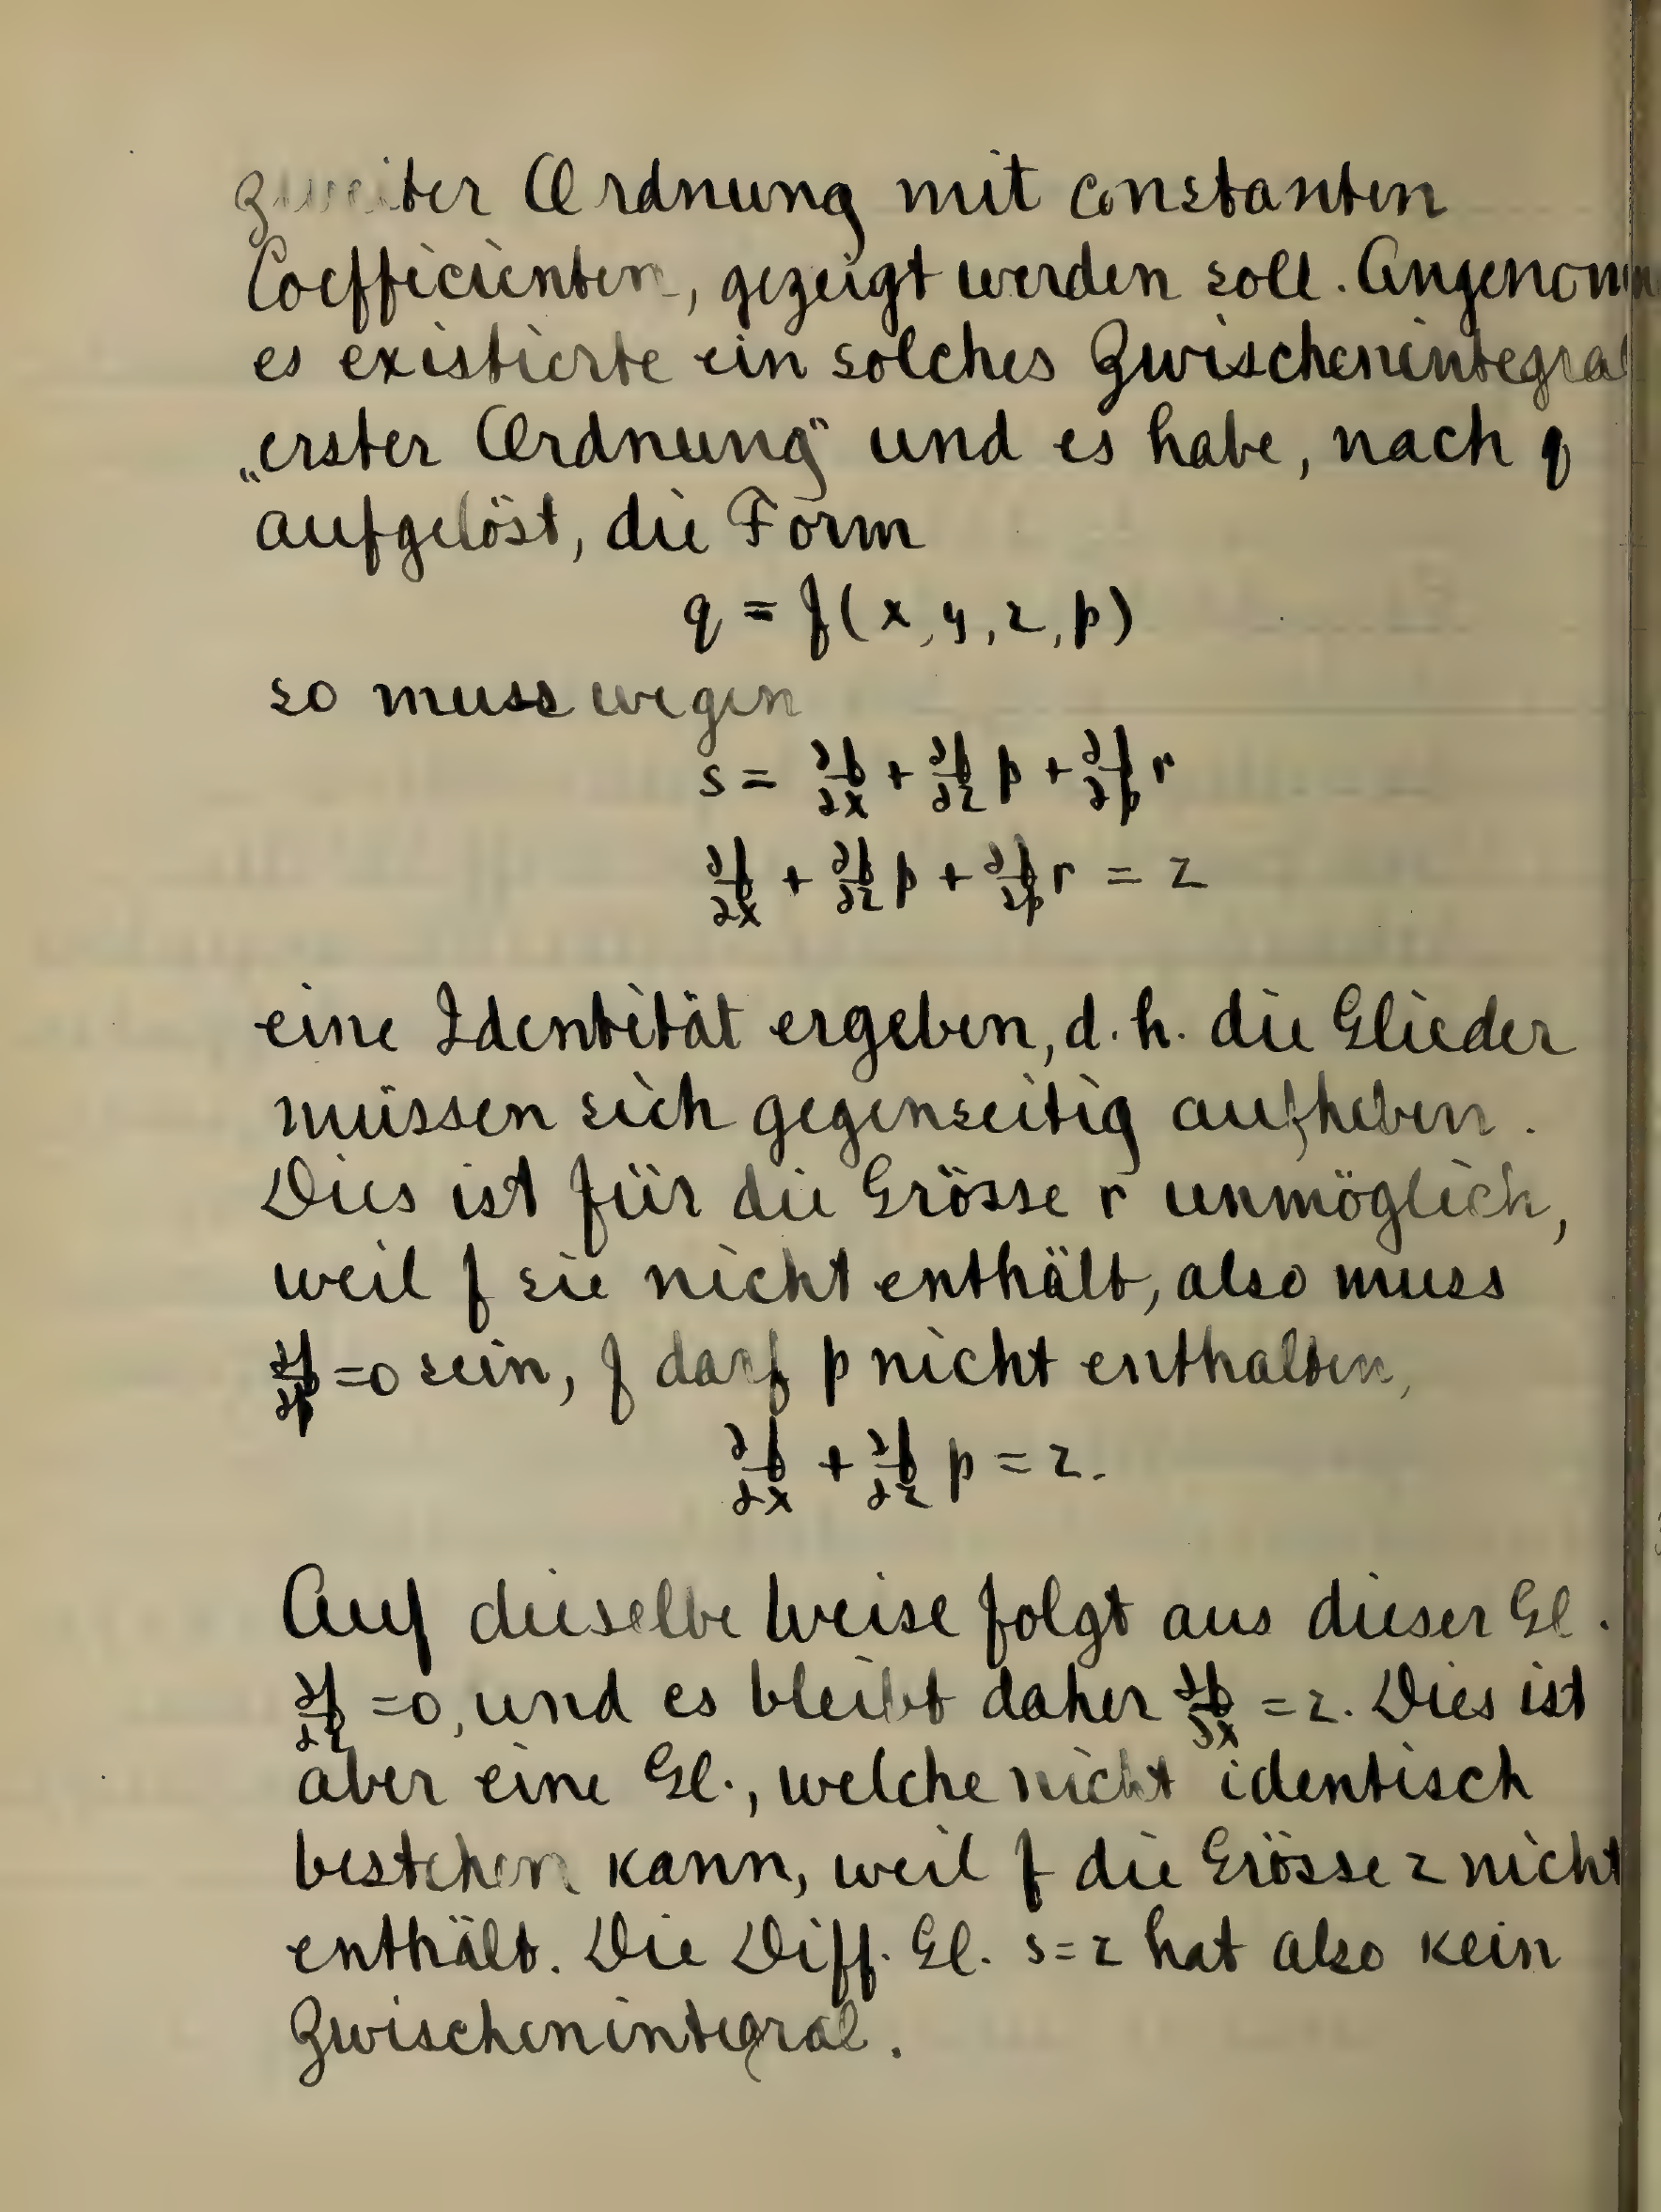 zweiter Ordnung mit constanten
Coefficienten, gezeigt werden soll. Angenomm
es existierte ein solches Zwischenintegral
„erster Ordnung“ und es habe, nach q
aufgelöst, die Form
q = f(x, y, z, p)
so muss wegen
s = ∂f/∂x + ∂f/∂z p + ∂f/∂p r
∂f/∂x + ∂f/∂z p + ∂f/∂p r = z
eine Identität ergeben, d. h. die Glieder
müssen sich gegenseitig aufheben.
Dies ist für die Grösse r unmöglich,
weil f sie nicht enthält, also muss
∂f/∂p = 0 sein, f darf p nicht enthalten,
∂f/∂x + ∂f/∂z p = z.
Auf dieselbe Weise folgt aus dieser Gl.
∂f/∂z = 0, und es bleibt daher ∂f/∂x = z. Dies ist
aber eine Gl., welche nicht identisch
bestehen kann, weil f die Grösse z nicht
enthält. Die Diff. Gl. s = z hat also kein
Zwischenintegral.